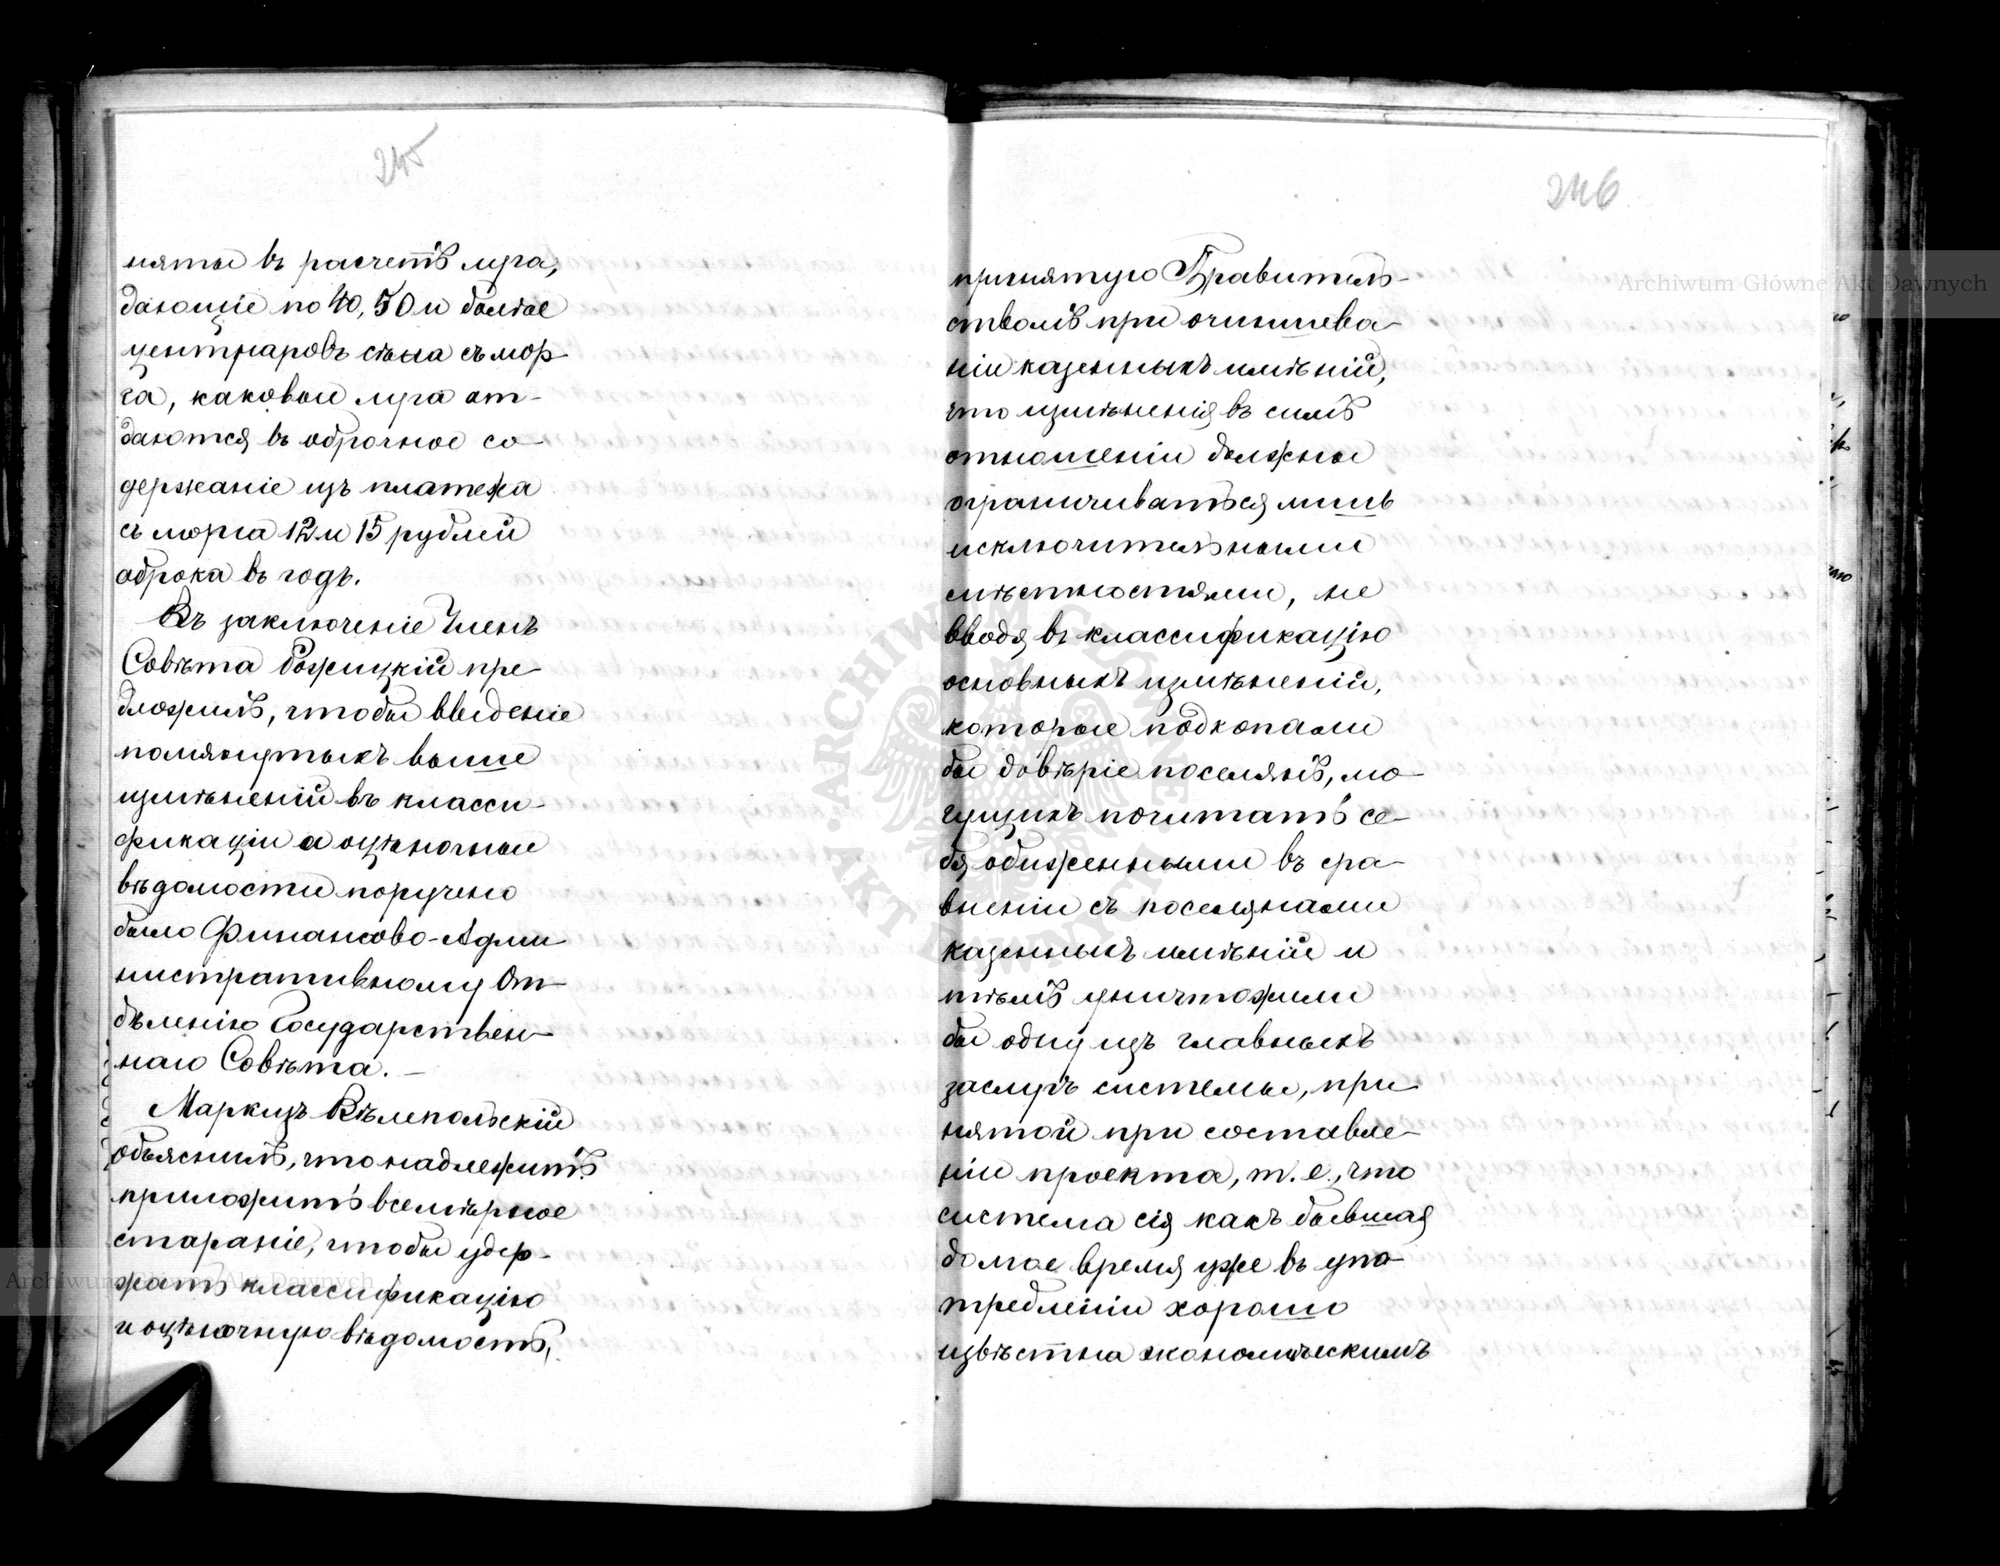 245
няты въ расчетъ луга,
дающіе по 40, 50 и болѣе
центнаровъ сѣна съ мор-
га, каковые луга от-
даются въ оброчное со-
держаніе изъ платежа
съ морга 12 и 15 рублей
оброка въ годъ.
Въ заключеніе Членъ
Совѣта Божицкій пре-
дложилъ, чтобы введеніе
помянутыхъ выше
измѣненій въ класси-
фикаціи и оцѣночные
вѣдомости поручено
было Финансово-Адми
нистративному От-
дѣленію Государствен-
наго Совѣта. —
Маркизъ Вѣлепольскій
объяснилъ, что надлежитъ
приложить всемѣрное
стараніе, чтобы удер-
жать классификацію
и оцѣночную вѣдомость,
246
принятую Правитель-
ствомъ при очиншева-
ніи казенныхъ имѣній,
что измѣненія въ семъ
отношеніи должны
ограничиваться лишь
исключительными
мѣстностями, не
вводя въ классификацію
основныхъ измѣненій,
которые подкопали
бы довѣріе поселянъ, мо-
гущихъ почитать се-
бя обиженными въ сра-
вненіи съ поселянами
казенныхъ имѣній и
тѣмъ уничтожили
бы одну изъ главныхъ
заслугъ системы, при
нятой при составле-
ніи проекта, т. е., что
система сія какъ бывшая
долгое время уже въ упо-
требленіи хорошо
извѣстна экономическимъ
Archiwum Główne Akt Dawnych
Archiwum Główne Akt Dawnych
ARCHIWUM GŁÓWNE AKT DAWNYCH